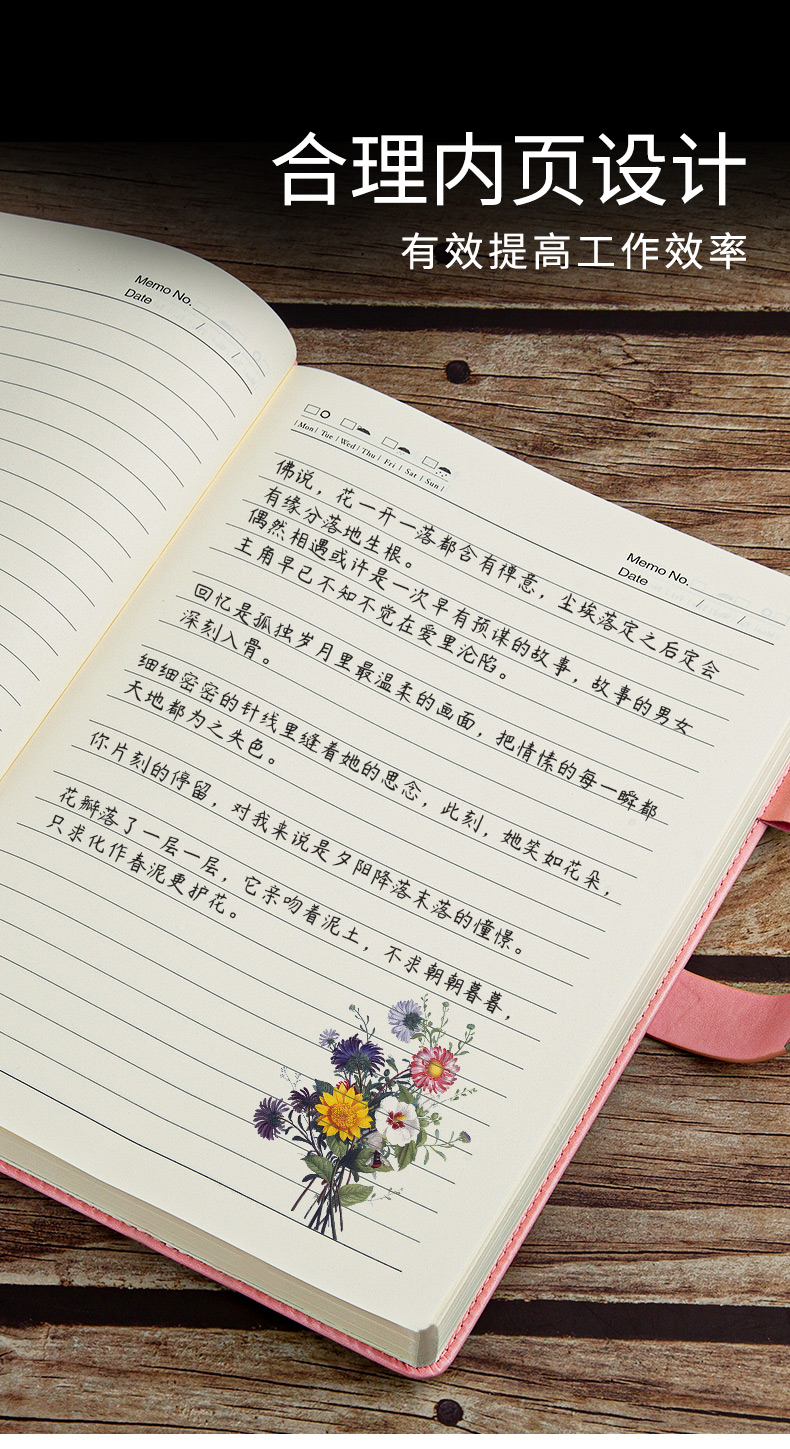 合理内页设计
有效提高工作效率
Memo No.
Date / /
Mon | Tue | Wed | Thu | Fri | Sat | Sun
Memo No.
Date / /
佛说，花一开一落都含有禅意，尘埃落定之后定会
有缘分落地生根。
偶然相遇或许是一次早有预谋的故事，故事的男女
主角早已不知不觉在爱里沦陷。
回忆是孤独岁月里最温柔的画面，把情愫的每一瞬都
深刻入骨。
细细密密的针线里缝着她的思念，此刻，她笑如花朵，
天地都为之失色。
你片刻的停留，对我来说是夕阳降落未落的憧憬。
花瓣落了一层一层，它亲吻着泥土，不求朝朝暮暮，
只求化作春泥更护花。